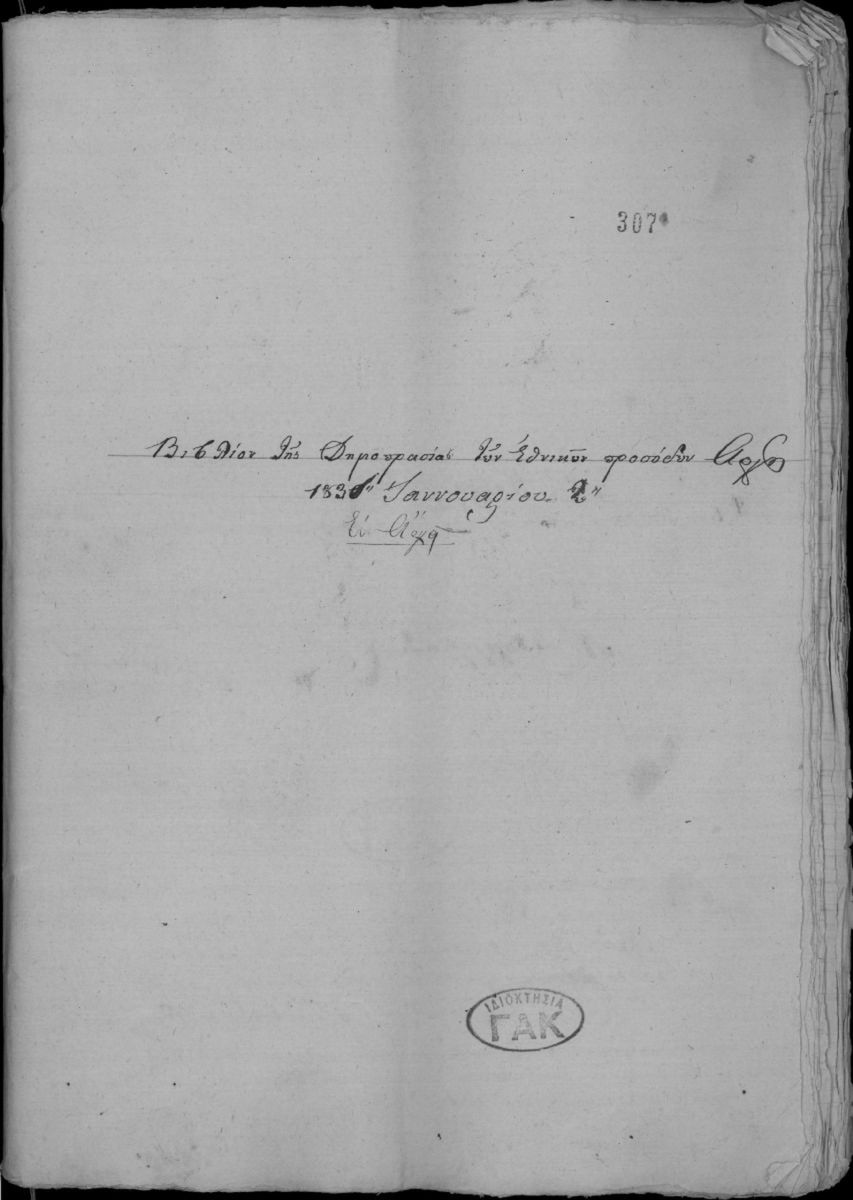 307
Βιβλίον τῆς Δημοπρασίας τῶν Ἐθνικῶν προσόδων
183 Ἰαννουαρίου 2"
Ἐν Ἄργει
ΙΔΙΟΚΤΗΣΙΑ
ΓΑΚ